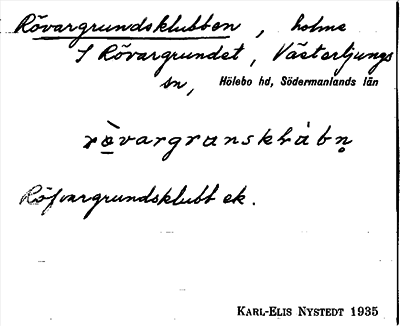 Rövargrundsklubben, holme
S Rövargrundet, Västerljungs
sn, Hölebo hd, Södermanlands län
rò̱vargranskłàbn̥
Röfvargrundsklubb ek.
KARL-ELIS NYSTEDT 1935